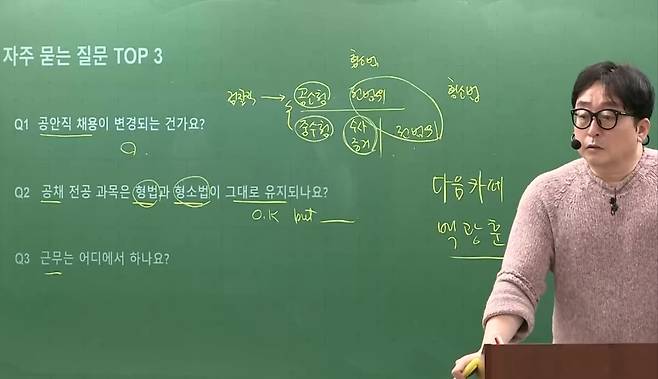 자주 묻는 질문 TOP 3
형소법
검찰직 → 공소청
중수청
수사
증거
형소법
Q1 공안직 채용이 변경되는 건가요?
Q2 공채 전공 과목은 형법과 형소법이 그대로 유지되나요?
O.K but
다음카페
백광훈
Q3 근무는 어디에서 하나요?